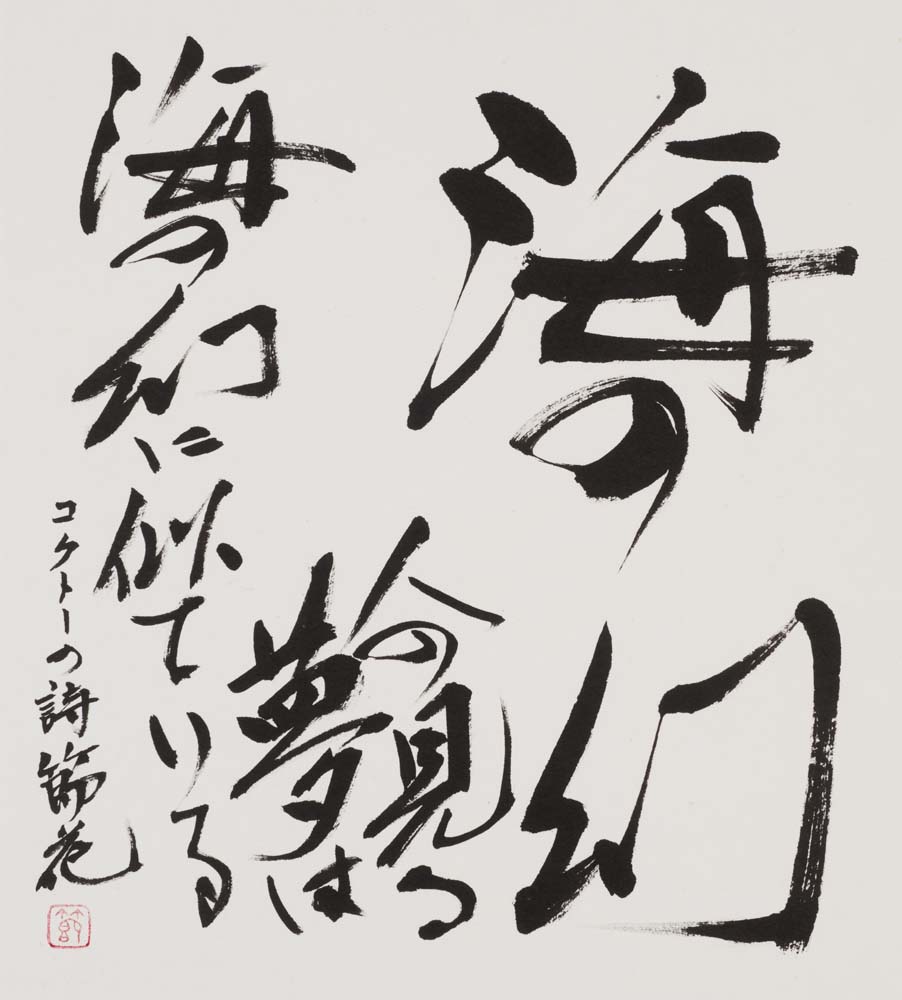 海の幻
人の見る
夢は
海の幻に似ている
コクトーの詩 節花
節